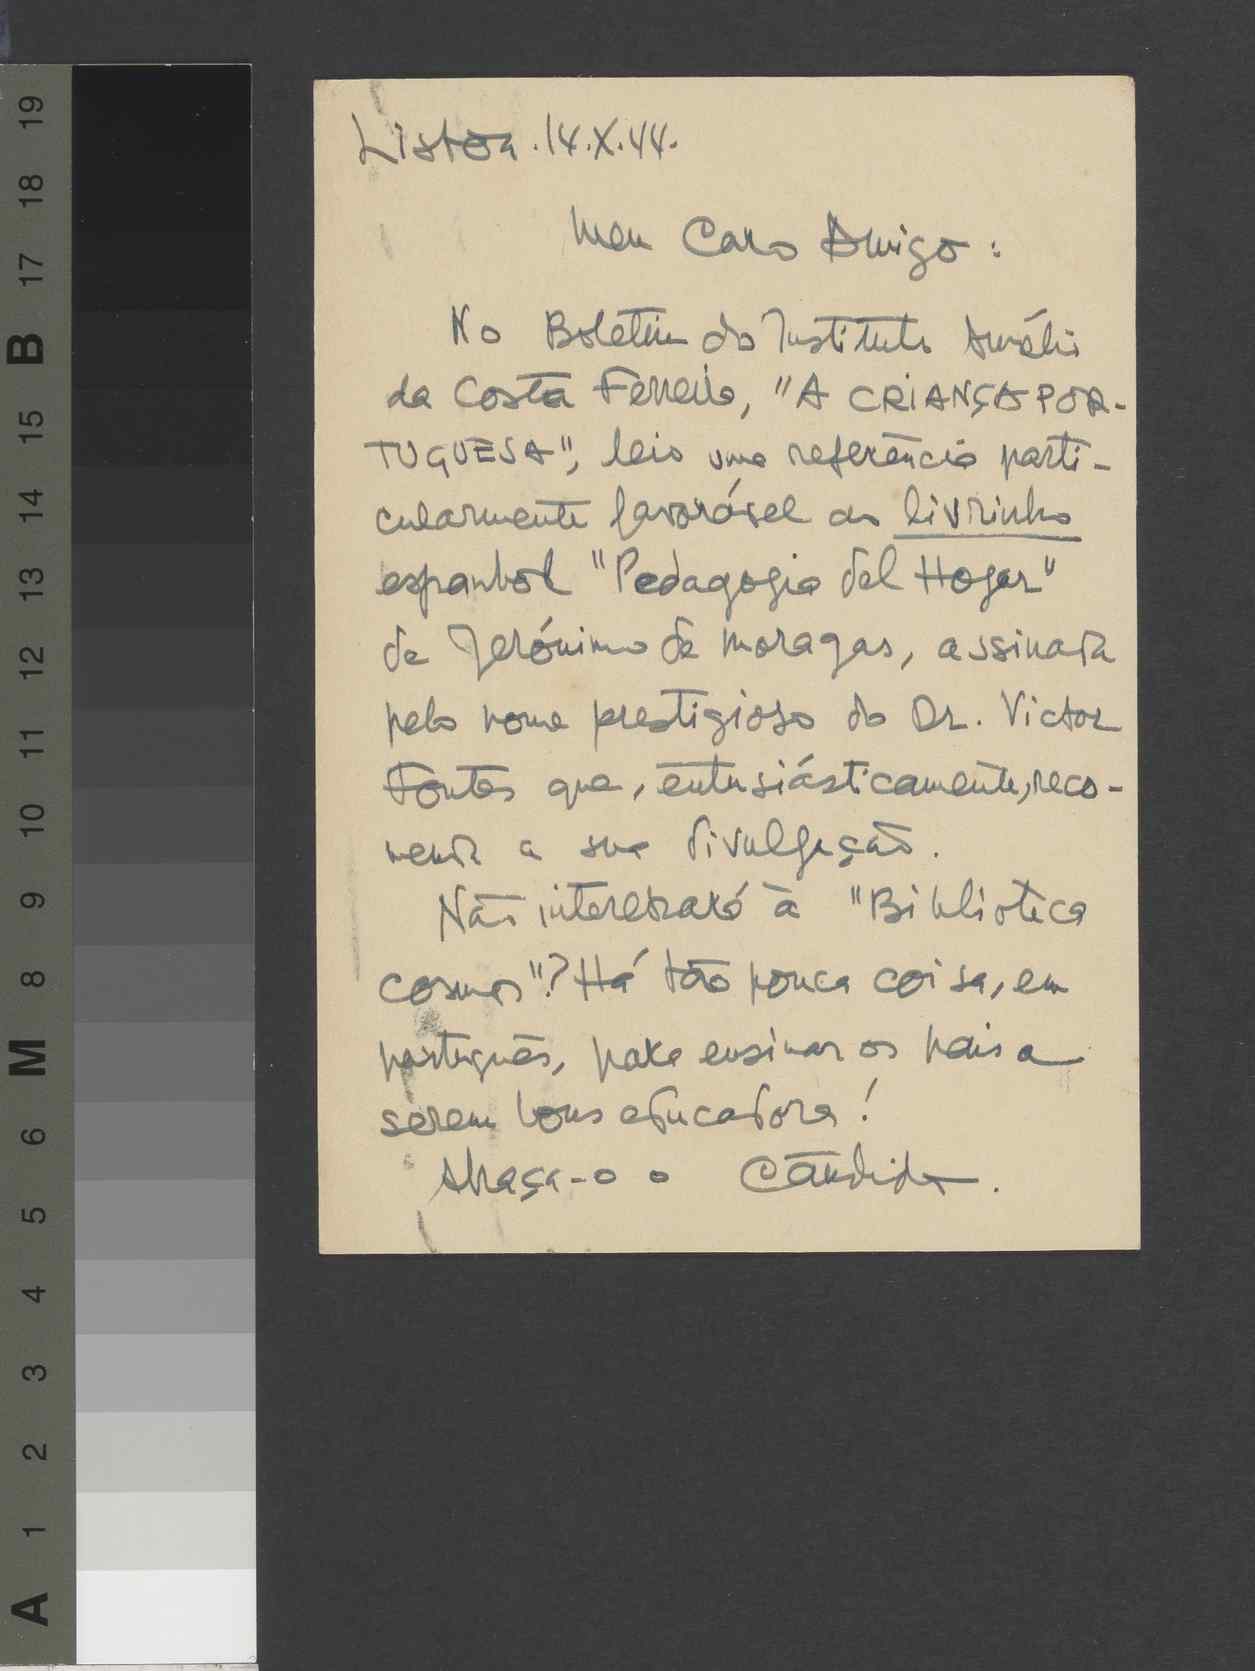 Lisboa.14.X.44.
Meu Caro Amigo:
No Boletim do Instituto Aurélio
da Costa Ferreira, "A CRIANÇA POR-
TUGUESA", leio uma referência parti-
cularmente favorável ao livrinho
espanhol "Pedagogia del Hogar"
de Jerónimo de Moragas, assinada
pelo nome prestigioso do Dr. Victor
Fontes que, entusiásticamente, reco-
menda a sua divulgação.
Não interessará à "Biblioteca
Cosmos"? Há tão pouca coisa, em
português, para ensinar os pais a
serem bons educadores!
Abraça-o o Cândido.
19
18
17
B
15
14
13
12
11
10
9
8
M
6
5
4
3
2
1
A